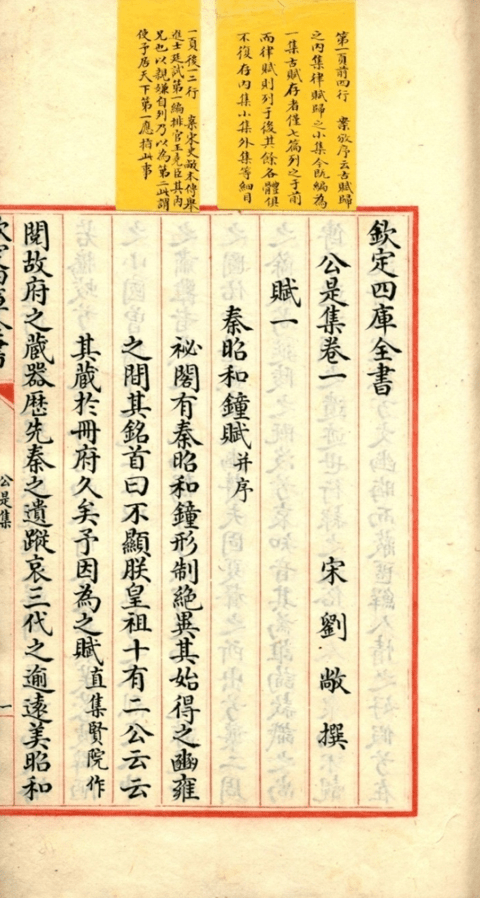 第一頁前四行 案攽序云古賦歸
之內集律賦歸之小集今既編為
一集古賦存者僅七篇列之于前
而律賦則列于後其餘各體俱
不復存內集小集外集等細目
一頁後一二行 案宋史敞本傳舉
進士廷試第一編排官王堯臣其內
兄也以親嫌自列乃以為第二此謂
使予居天下第一應指此事
欽定四庫全書
公是集卷一 宋 劉敞 撰
賦一
秦昭和鐘賦并序
祕閣有秦昭和鐘形制絶異其始得之豳雍
之間其銘首曰不顯朕皇祖十有二公云云
其藏於冊府久矣予因為之賦直集賢院作
閱故府之蔵器歴先秦之遺蹤哀三代之逾遠美昭和
公是集
一